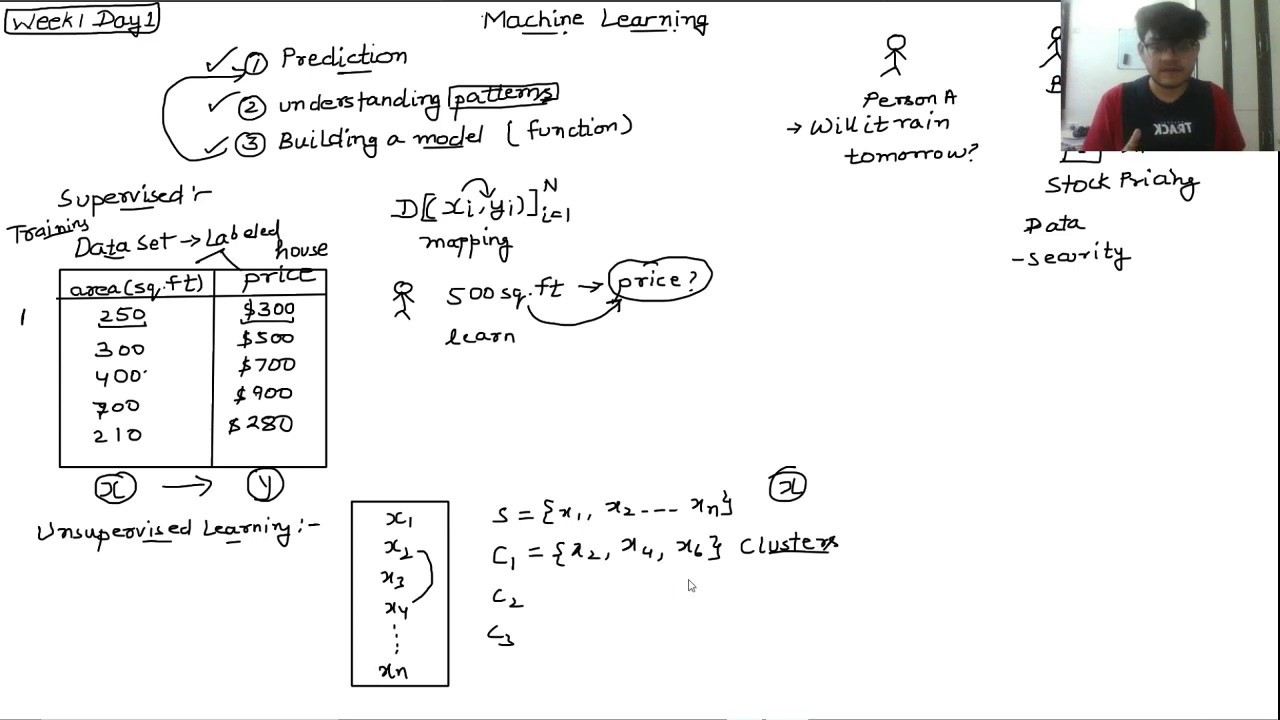 Week1 Day1
Machine Learning
① Prediction
② understanding patterns
③ Building a model (function)
Person A
→ Will it rain
tomorrow?
B
Stock Pricing
Data
- Security
TRACK
Supervised :-
Training
Data set → Labeled
area(sq.ft) house price
1 250 $300
300 $500
400 $700
700 $900
210 $280
x → y
D[(xi, yi)]ᴺi=1
mapping
500 sq.ft → price?
learn
Unsupervised Learning :-
x1
x2
x3
x4
xn
S = {x1, x2 --- xn}
x
C1 = {x2, x4, x6} Clusters
C2
C3